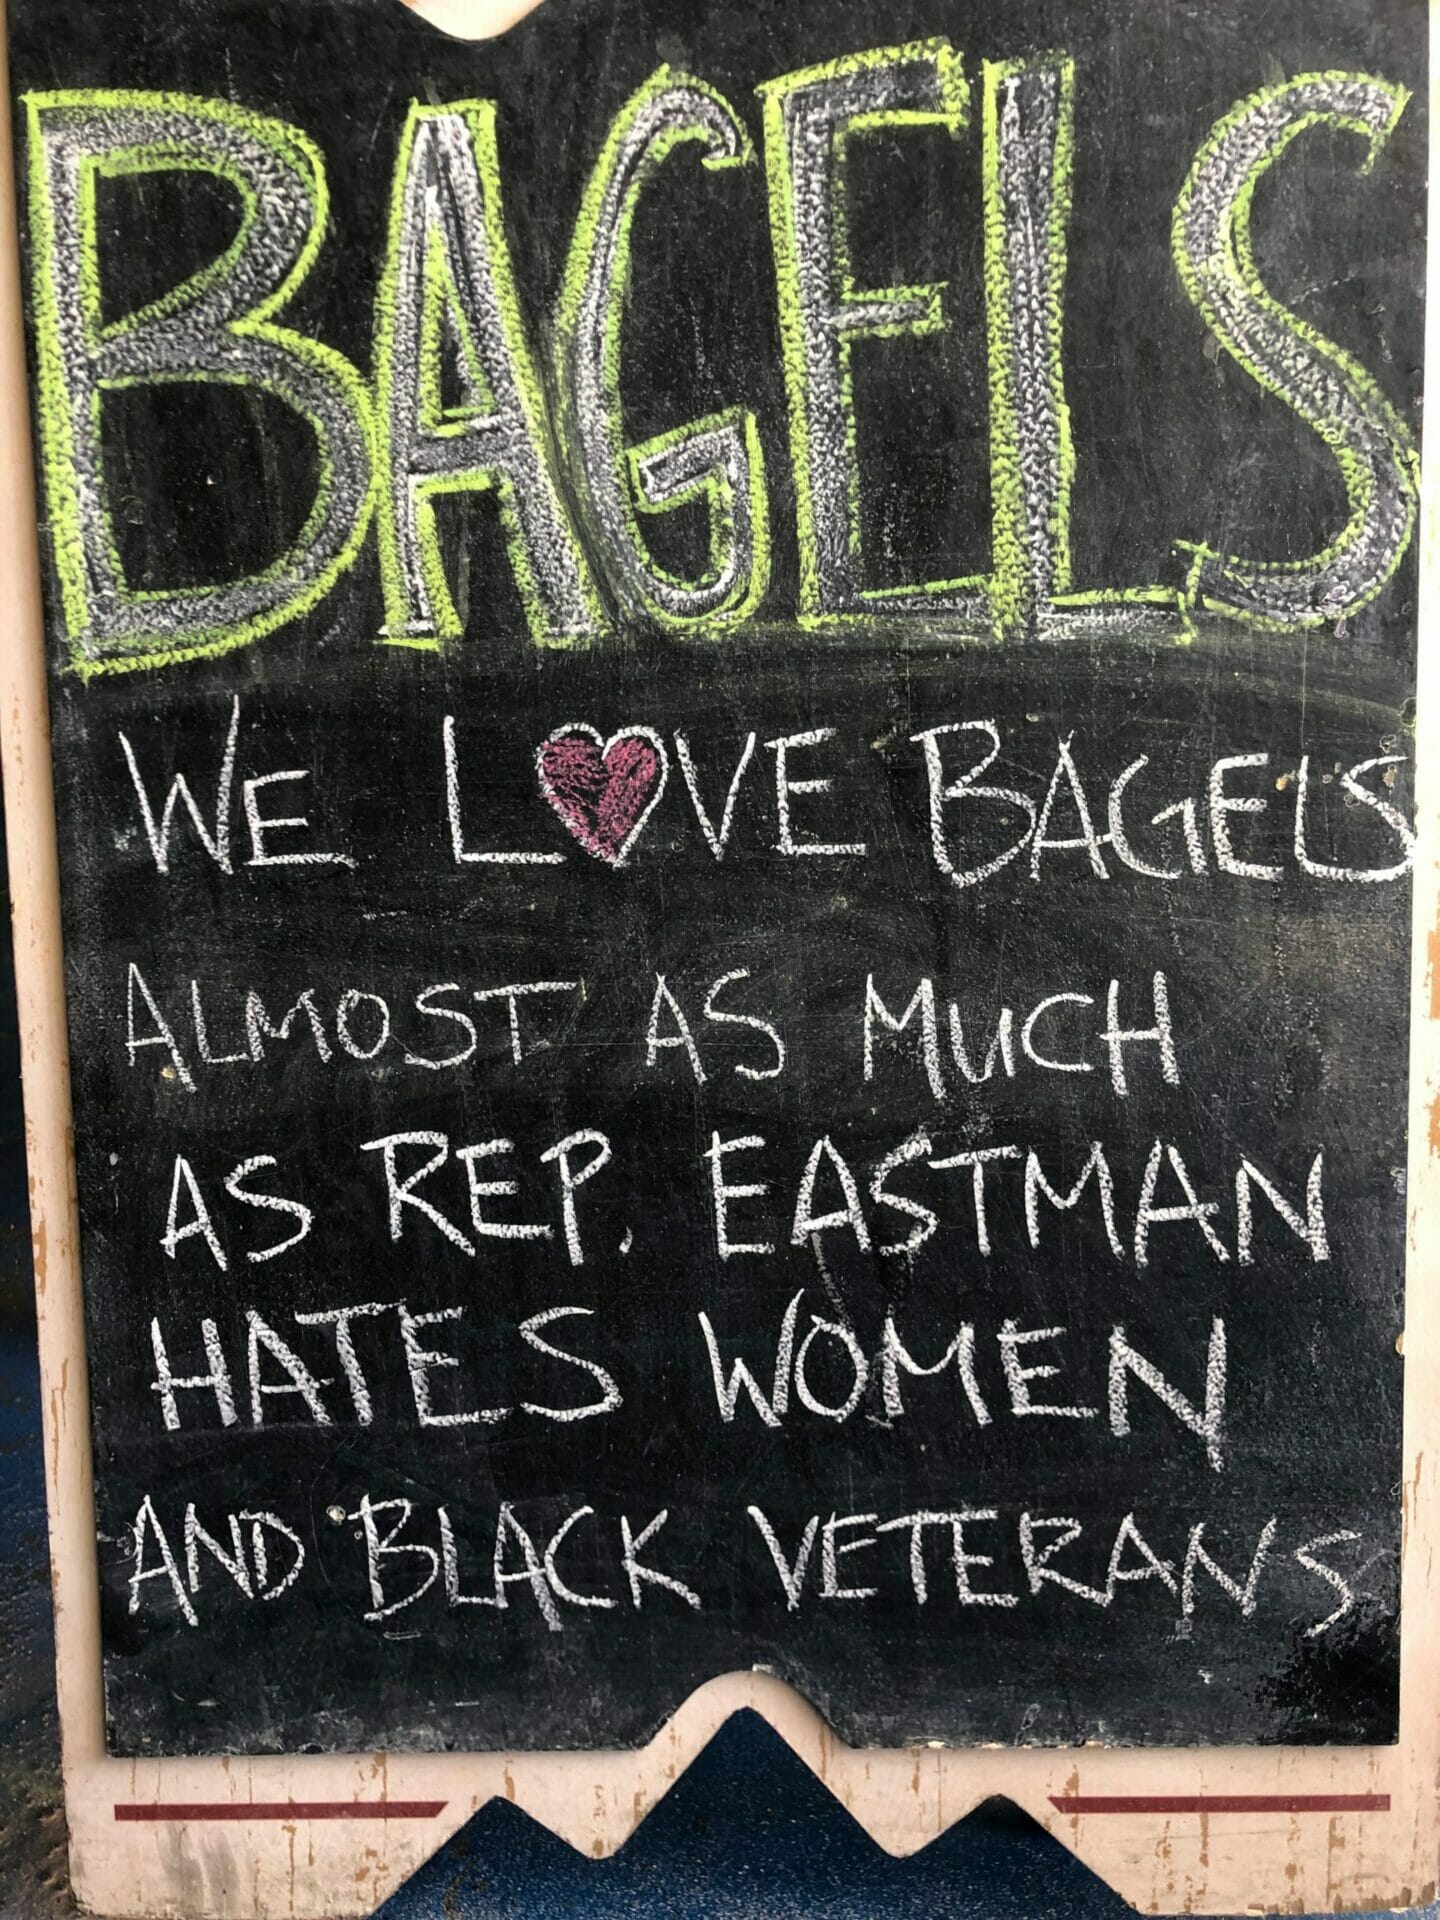 BAGELS
WE L♥VE BAGELS
ALMOST AS MUCH
AS REP. EASTMAN
HATES WOMEN
AND BLACK VETERANS